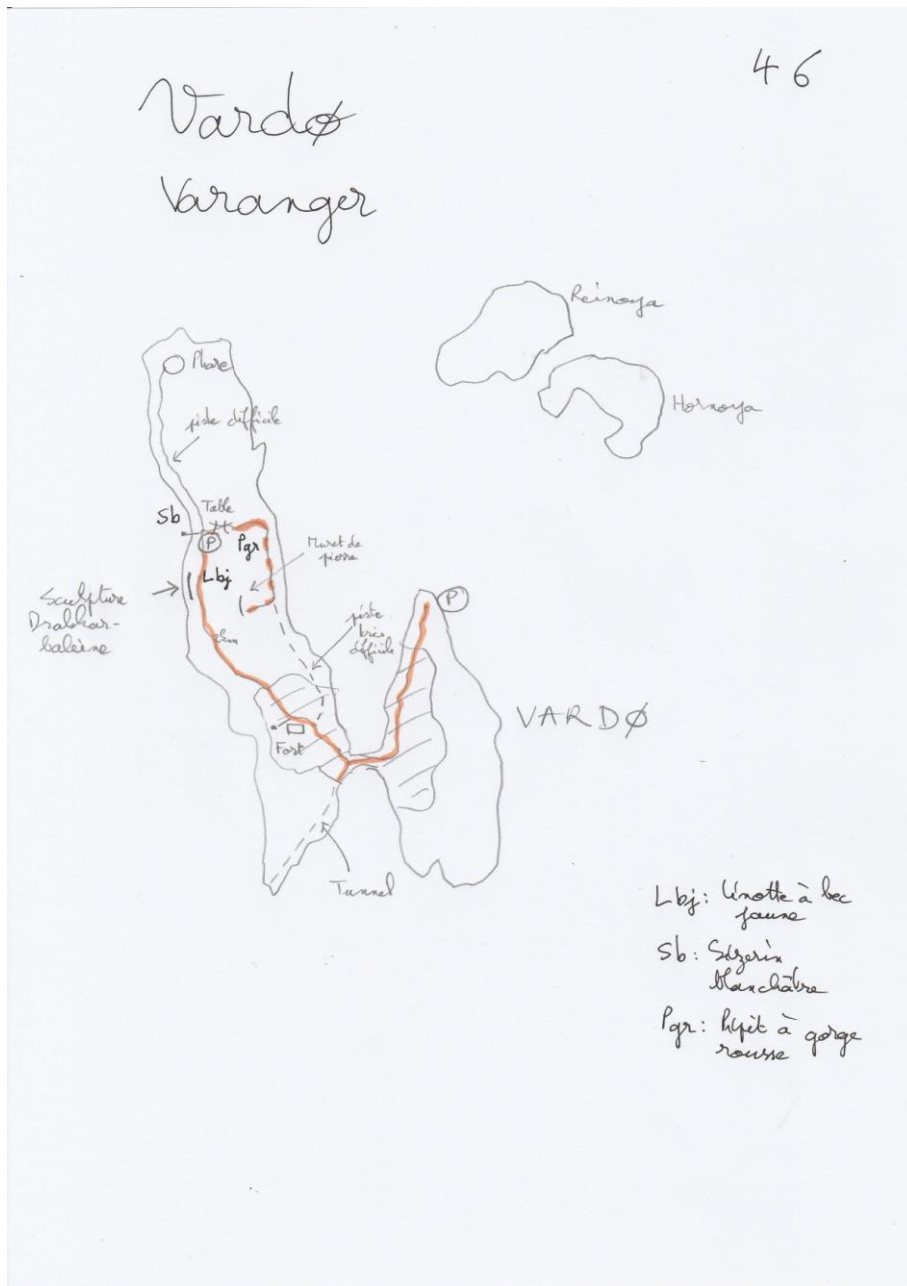 46
Vardø
Varanger
Reinoya
Hornoya
Phare
piste difficile
Table
Sb
P
Pgr
Muret de
pierre
Lbj
Sculpture
Drakkar-
baleine
piste
très
difficile
P
VARDØ
Fort
Tunnel
Lbj: linotte à bec
jaune
Sb: Sizerin
blanchâtre
Pgr: Pipit à gorge
rousse